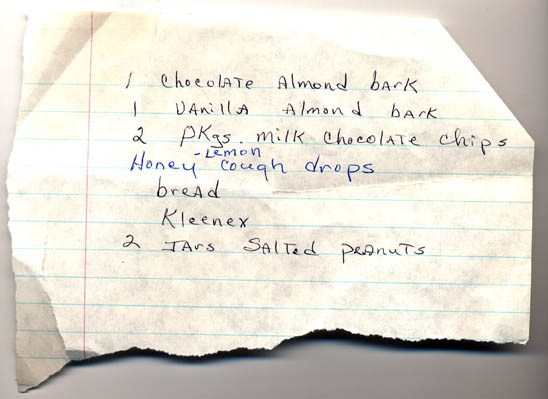 1 Chocolate Almond bark
1 Vanilla Almond bark
2 pkgs. milk chocolate chips
Honey-Lemon cough drops
bread
Kleenex
2 Jars Salted peanuts